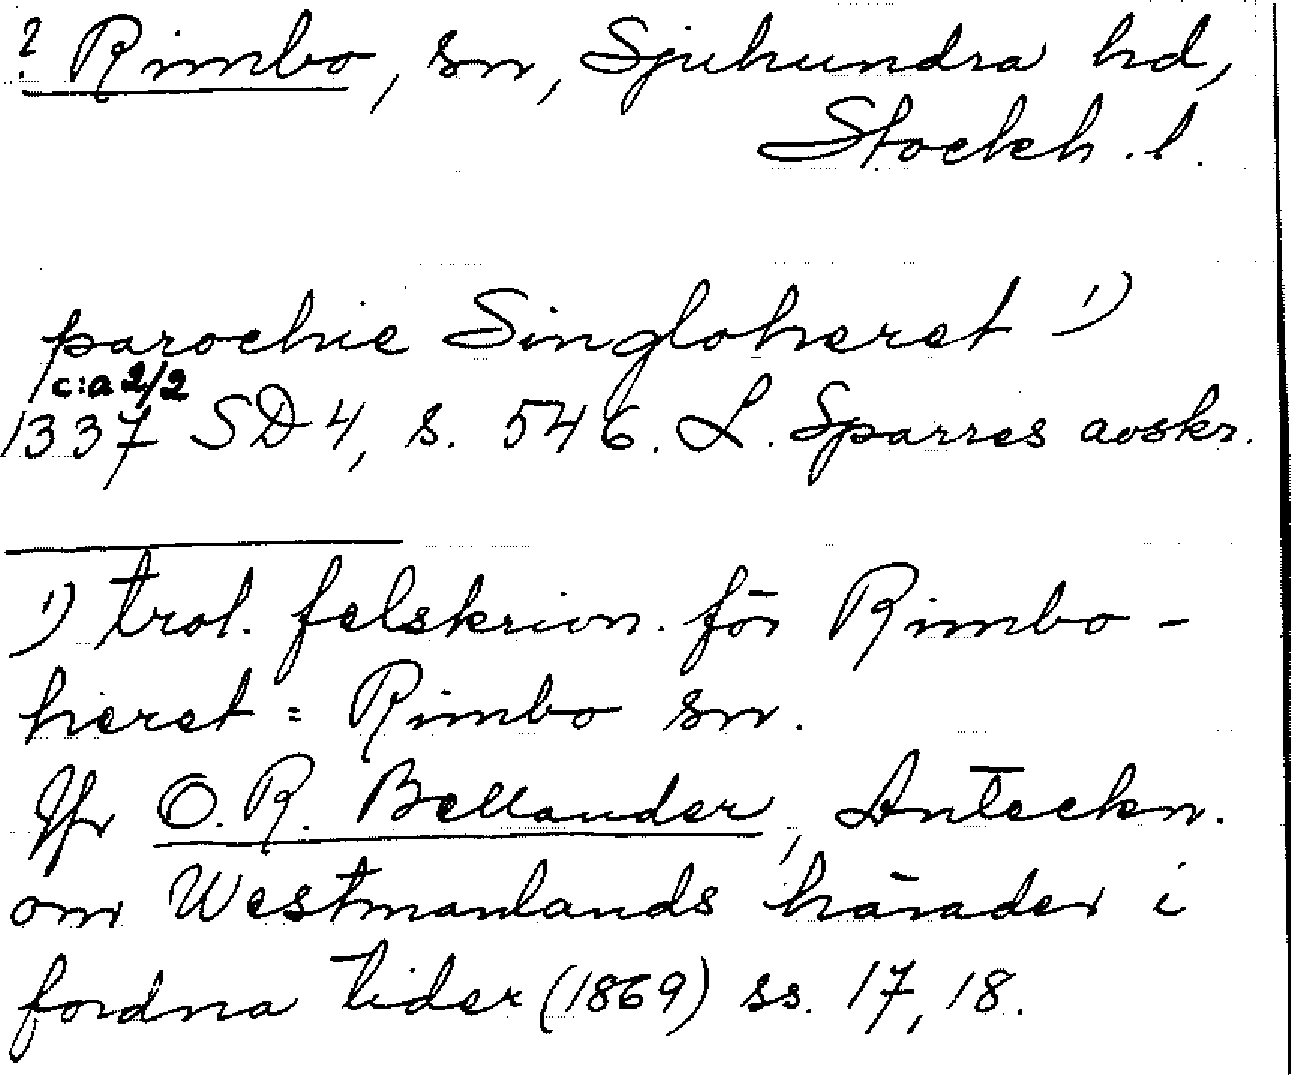 ? Rimbo, sn, Sjuhundra hd,
Stockh. l.
parochie Singloheret 1)
c:a 2/2
1337 SD 4, s. 546. L. Sparres avskr.
1) trol. felskrivn. för Rimbo-
heret = Rimbo sn.
Jfr O. R. Bellander, Anteckn.
om Westmanlands härader i
fordna tider (1869) ss. 17, 18.